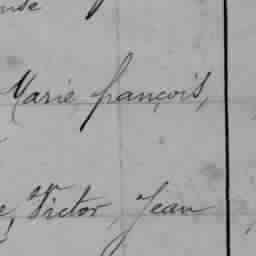 Marie françois,
Victor Jean